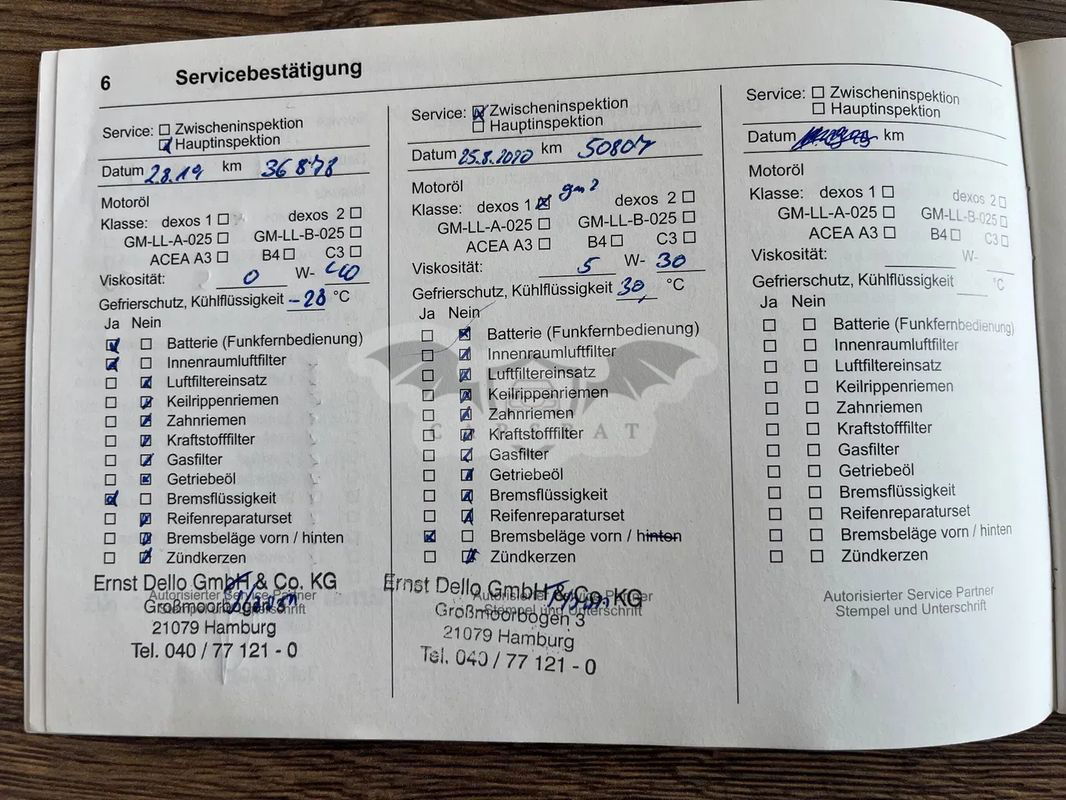 6 Servicebestätigung
Service: Zwischeninspektion
Hauptinspektion
Datum 2.8.19 km 36878
Motoröl
Klasse: dexos 1 dexos 2
GM-LL-A-025 GM-LL-B-025
ACEA A3 B4 C3
Viskosität: 0 W- 40
Gefrierschutz, Kühlflüssigkeit -28 °C
Ja Nein
Batterie (Funkfernbedienung)
Innenraumluftfilter
Luftfiltereinsatz
Keilrippenriemen
Zahnriemen
Kraftstofffilter
Gasfilter
Getriebeöl
Bremsflüssigkeit
Reifenreparaturset
Bremsbeläge vorn / hinten
Zündkerzen
Ernst Dello GmbH & Co. KG
Autorisierter Service Partner
Großmoorbogen
Stempel und Unterschrift
21079 Hamburg
Tel. 040 / 77 121 - 0
Service: Zwischeninspektion
Hauptinspektion
Datum 25.8.2020 km 50807
Motoröl
Klasse: dexos 1 dexos 2
GM-LL-A-025 GM-LL-B-025
ACEA A3 B4 C3
Viskosität: 5 W- 30
Gefrierschutz, Kühlflüssigkeit 30, °C
Ja Nein
Batterie (Funkfernbedienung)
Innenraumluftfilter
Luftfiltereinsatz
Keilrippenriemen
Zahnriemen
CARSBAT
Kraftstofffilter
Gasfilter
Getriebeöl
Bremsflüssigkeit
Reifenreparaturset
Bremsbeläge vorn / hinten
Zündkerzen
Ernst Dello GmbH & Co. KG
Autorisierter Service Partner
Großmoorbogen 3
Stempel und Unterschrift
21079 Hamburg
Tel. 040 / 77 121 - 0
Service: Zwischeninspektion
Hauptinspektion
Datum km
Motoröl
Klasse: dexos 1 dexos 2
GM-LL-A-025 GM-LL-B-025
ACEA A3 B4 C3
Viskosität: W-
Gefrierschutz, Kühlflüssigkeit °C
Ja Nein
Batterie (Funkfernbedienung)
Innenraumluftfilter
Luftfiltereinsatz
Keilrippenriemen
Zahnriemen
Kraftstofffilter
Gasfilter
Getriebeöl
Bremsflüssigkeit
Reifenreparaturset
Bremsbeläge vorn / hinten
Zündkerzen
Autorisierter Service Partner
Stempel und Unterschrift